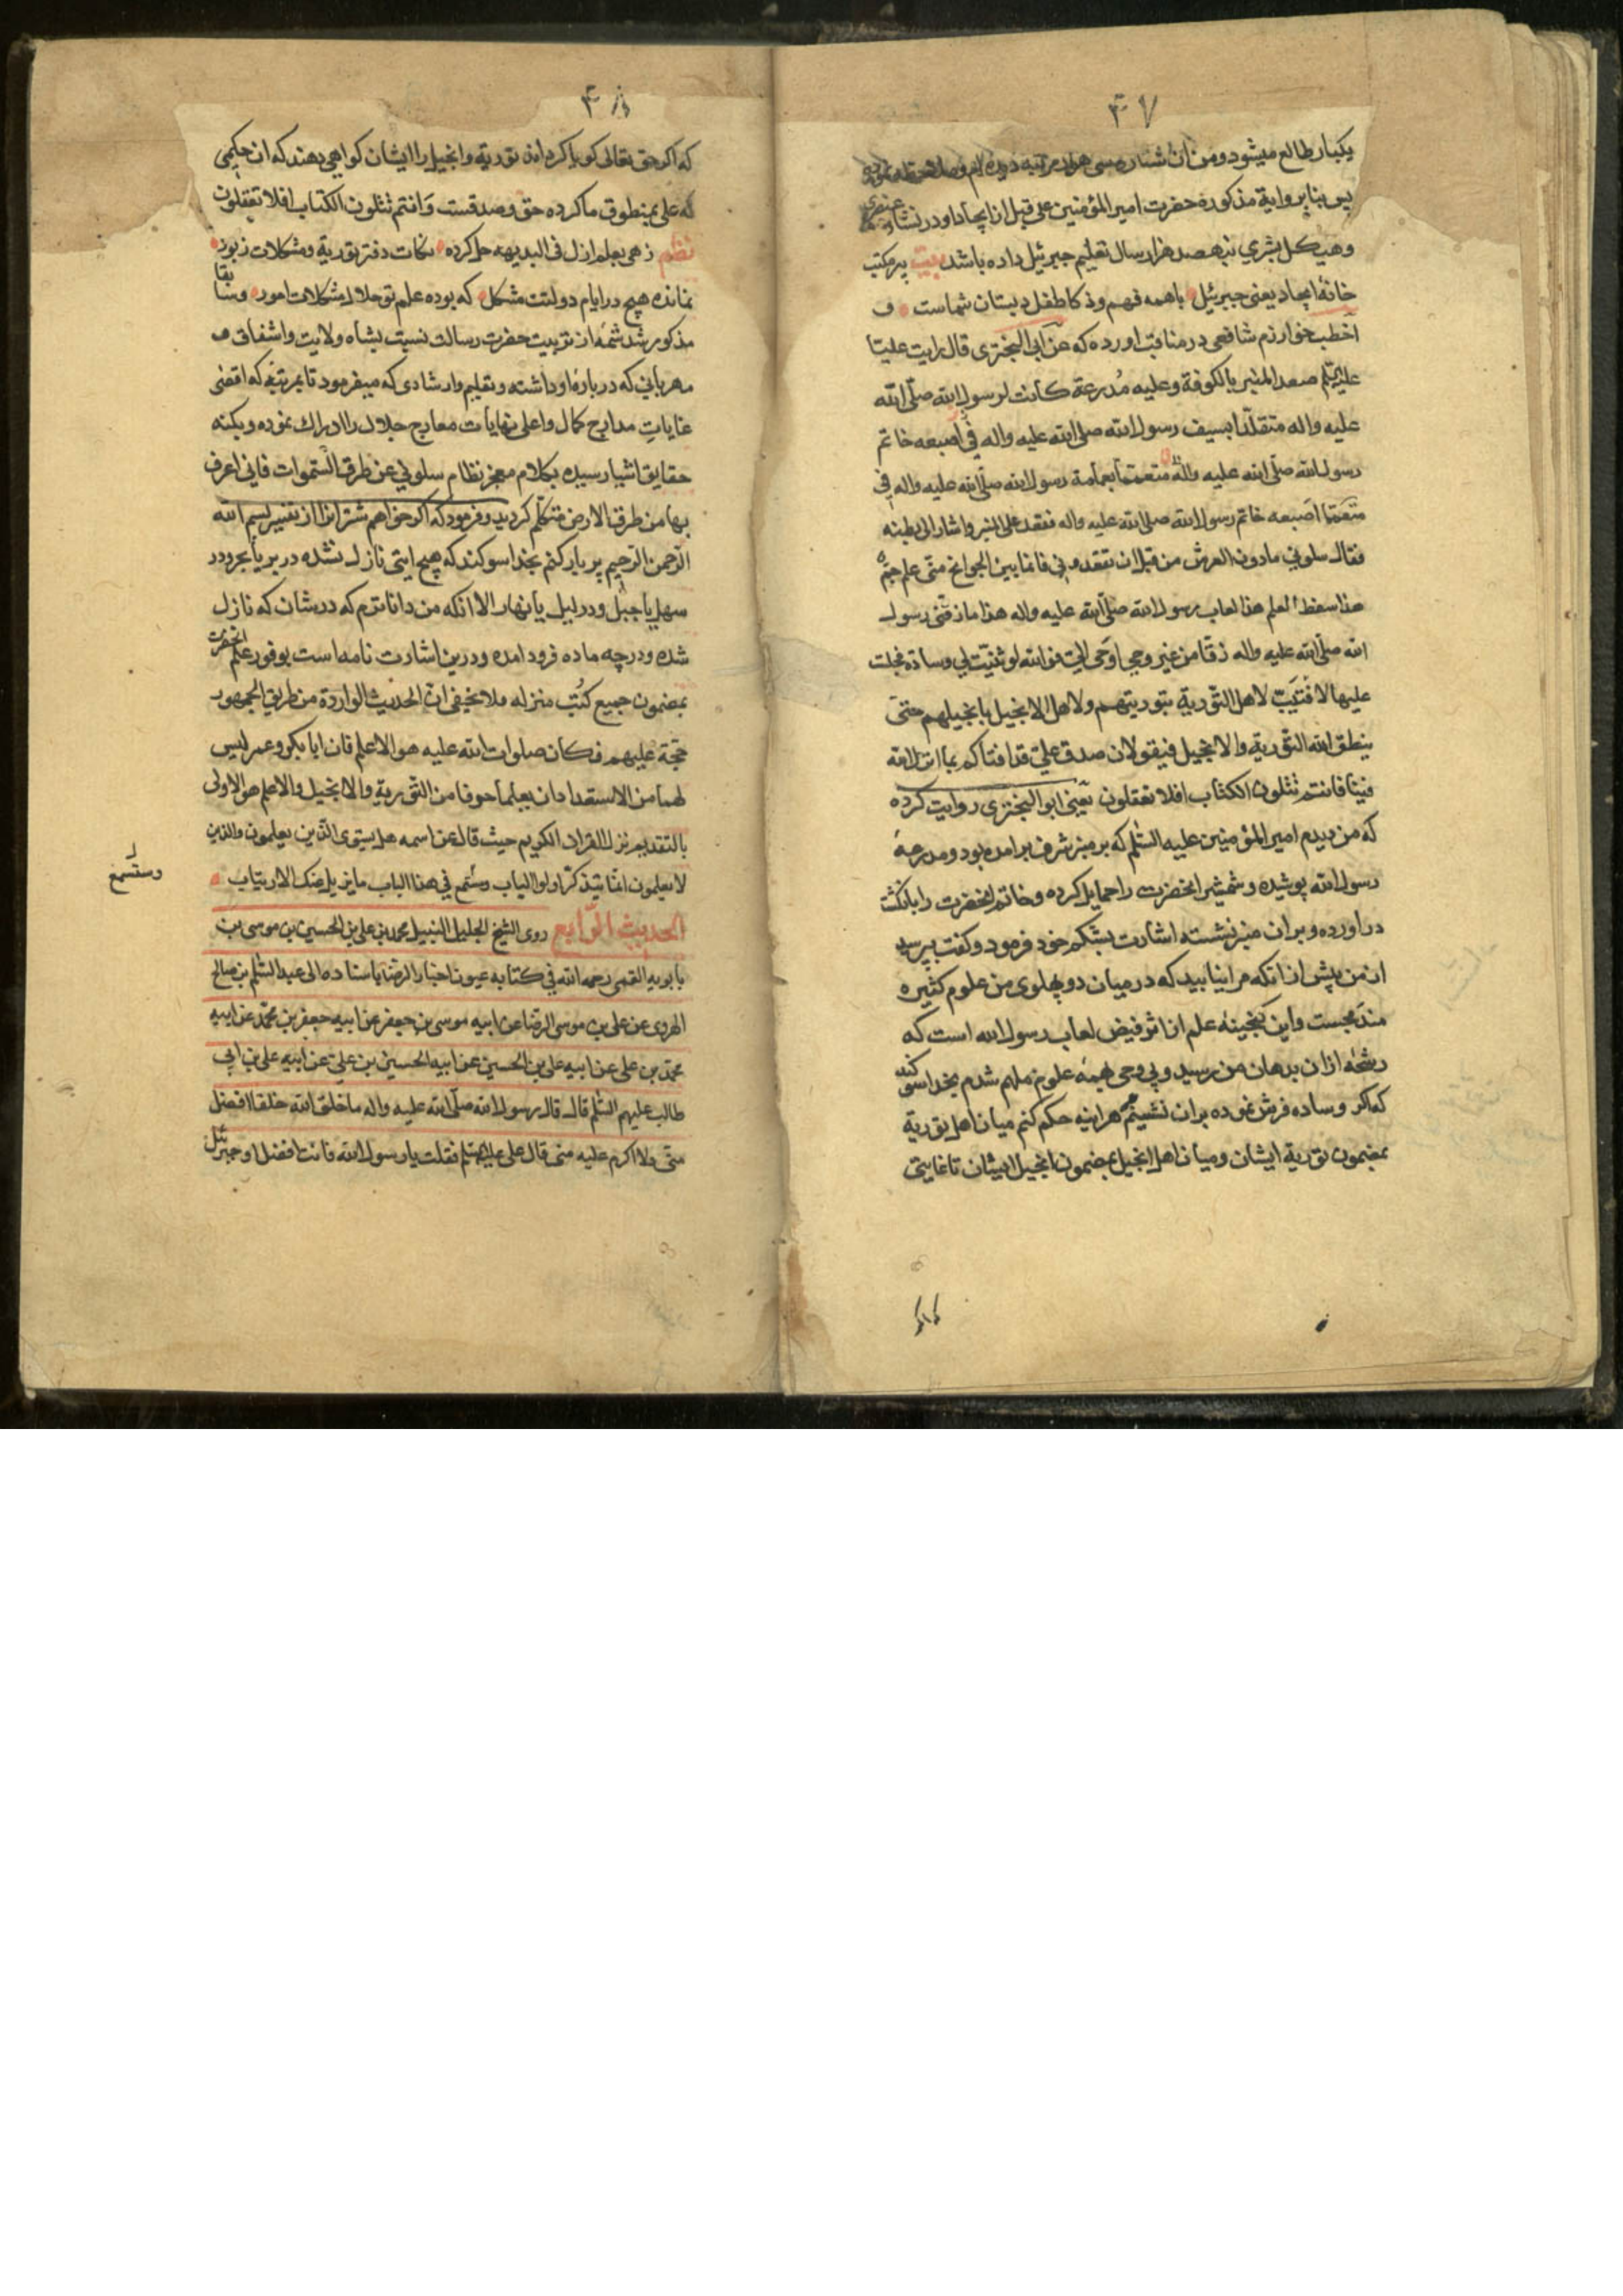 ۴۷
یکبار طالع میشود و من آن ستاره سی هزار مرتبه دیده‌ام و ملاحظه نموده
پس بنابر روایة مذکوره حضرت امیر المؤمنین علی قبل از ایجاد او در نشأه عنصری
و هیکل بشری نهصد هزار سال تعلیم جبرئیل داده باشد بیت بر مکتب
خانهٔ ایجاد یعنی جبرئیل باهمه فهم وذکا طفل دبستان شماست و
اخطب خوارزم شافعی در مناقب اورده که عن ابی البختری قال رایت علیّا
علیه السلم صعد المنبر بالکوفة وعلیه مُدرعة کانت لرسول الله صلّی الله
علیه واله متقلّدا بسیف رسول الله صلی الله علیه واله فی اصبعه خاتم
رسول الله صلّی الله علیه واله متعمّما بعمامة رسول الله صلّی الله علیه واله فی
متعمّما اصبعه خاتم رسول الله صلی الله علیه واله فقعد علی المنبر واشار الی بطنه
فقال سلونی مادون العرش من قبل ان تفقدونی فانما بین الجوانح منّی علم جمّ
هذا سفط العلم هذا لعاب رسول الله صلّی الله علیه واله هذا ما زقّنی رسول
الله صلّی الله علیه واله زقّا من غیر وحی اوحی الیّ فوالله لو ثنیّت لی وسادة فجلت
علیها لافتیت لاهل التّوریة بتوریتهم ولاهل الانجیل بانجیلهم حتّی
ینطق الله التّوریة والانجیل فیقولان صدق علیّ قد افتاکم بما انزل الله
فینا فانتم تتلون الکتاب افلا تعقلون یعنی ابو البختری روایت کرده
که من دیدم امیر المؤمنین علیه السّلم که بر منبر شرف برامده بود ومدرعهٔ
رسول الله پوشیده وشمشیر انحضرت را حمایل کرده وخاتم انحضرت را بانگشت
دراورده وبران منبر نشسته اشارت بشکم خود فرمود وگفت بپرسید
از من پیش از انکه مرا نیابید که در میان دو پهلوی من علوم کثیره
مندمجست واین گنجینهٔ علم از اثر فیض لعاب رسول الله است که
رشحهٔ ازان بدهان من رسید وبی وحی همهٔ علوم ملهم شدم بخدا سوکند
که اکر وساده فرش نموده بران نشینم هراینه حکم کنم میان اهل توریة
بمضمون توریة ایشان ومیان اهل انجیل بمضمون انجیل ایشان تا غایتی
۴۸
که اکر حق تعالی کویا کرداند توریة وانجیل را ایشان کواهی دهند که ان حکمی
که علی بمنطوق ما کرده حق وصدقست وَانتم تتلون الکتاب افلا تعقلون
نظم زهی بعلم ازل فی البدیهه حل کرده نکات دفتر توریة ومشکلات زبور
نمانده هیچ در ایام دولتت مشکل که بوده علم تو حلال مشکلات امور وسابقا
مذکور شد شمهٔ از تربیت حضرت رسالت نسبت بشاه ولایت واشفاق و
مهربانی که دربارهٔ او داشته وتعلیم وارشادی که میفرمود تا بمرتبهٔ که اقصی
غایاتِ مدارج کمال واعلی نهایات معارج جلال را ادراک نموده وبکنه
حقایق اشیا رسیده بکلام معجز نظام سلونی عن طرق السّموات فانی اعرف
بها من طرق الارض متکلّم کردید وفرمود که اکر خواهم شتران را از تفسیر بسم الله
الرّحمن الرّحیم پر بار کنم بخدا سوکند که هیچ ایتی نازل نشده در بر یا بحر ودر
سهل یا جبل ودر لیل یا نهار الا انکه من داناترم که در شان که نازل
شده ودرچه ماده فرود امده ودرین اشارت نامه است بوفور علم انحضرت
بمضمون جمیع کُتُب منزله ولا یخفی انّ الحدیث الواردة من طریق الجمهور
حجّة علیهم فکان صلوات الله علیه هو الاعلم فان ابا بکر وعمر لیس
لهما من الاستعداد ان یعلما حرفا من التّوریة والانجیل والاعلم هو الاولی
بالتقدیم نزل القران الکریم حیث قال عن اسمه هل یستوی الّذین یعلمون والذین
لا یعلمون انّما یتذکّر اولو الالباب وستمع فی هذا الباب ما یزیل عنک الارتیاب
وستسمع
الحدیث الرّابع روی الشیخ الجلیل النبیل محمد بن علی بن الحسین بن موسی بن
بابویه القمی رحمه الله فی کتابه عیون اخبار الرضا باسناده الی عبد السّلم بن صالح
الهروی عن علی بن موسی الرضا عن ابیه موسی بن جعفر عن ابیه جعفر بن محمّد عن ابیه
محمّد بن علی عن ابیه علی بن الحسین عن ابیه الحسین بن علیّ عن ابیه علی بن ابی
طالب علیهم السّلم قال قال رسول الله صلّی الله علیه واله ما خلق الله خلقا افضل
منّی ولا اکرم علیه منّی قال علی علیه السلم فقلت یا رسول الله فانت افضل او جبرئیل